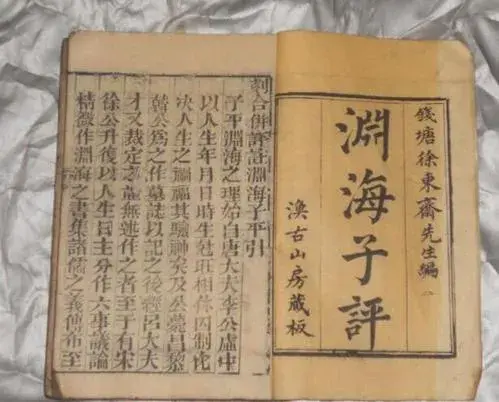 錢塘徐東齋先生編
淵海子評
古山房藏板
刻合併評註淵海子平引
子平淵海之理始自唐大夫李公虛中
以人生年月日時生尅旺相休囚制化
決人生之禍福其驗神矣及公薨昌黎
韓公爲之作墓誌以記之後經呂大夫
才又裁定之並無述作之者至于有宋
徐公升復以人生日主分作六事議論
精微作淵海之書集諸儒之義傳布至